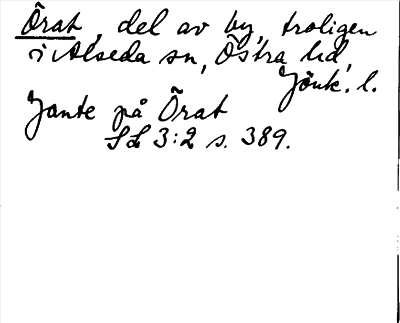 Örat, del av by, troligen
i Alseda sn, Östra hd,
Jönk. l.
Jante på Örat
SL 3:2 s. 389.